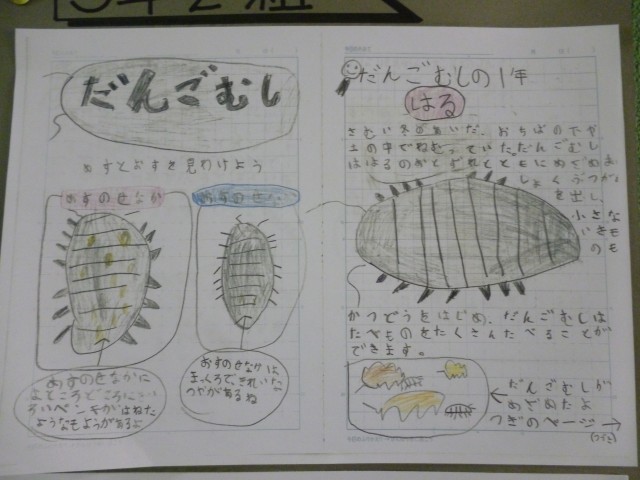 だんごむし
めすとおすを見わけよう
めすのせなか
おすのせなか
めすのせなかに
ところどころにきいろい
ペンキがはねた
ようなもようがあるよ
おすのせなかは
まっくろで、きれいな
つやがあるね
だんごむしの1年
はる
さむい冬のあいだ、おちばの下や
土の中でねむっていただんごむし
ははるのおとずれとともにめざめ、
しょくよくが
を出し
小さな
いきも
のも
かつどうをはじめ、だんごむしは
たべものをたくさんたべることが
できます。
だんごむしが
めざめたよ
つぎのページ→
(つづき)